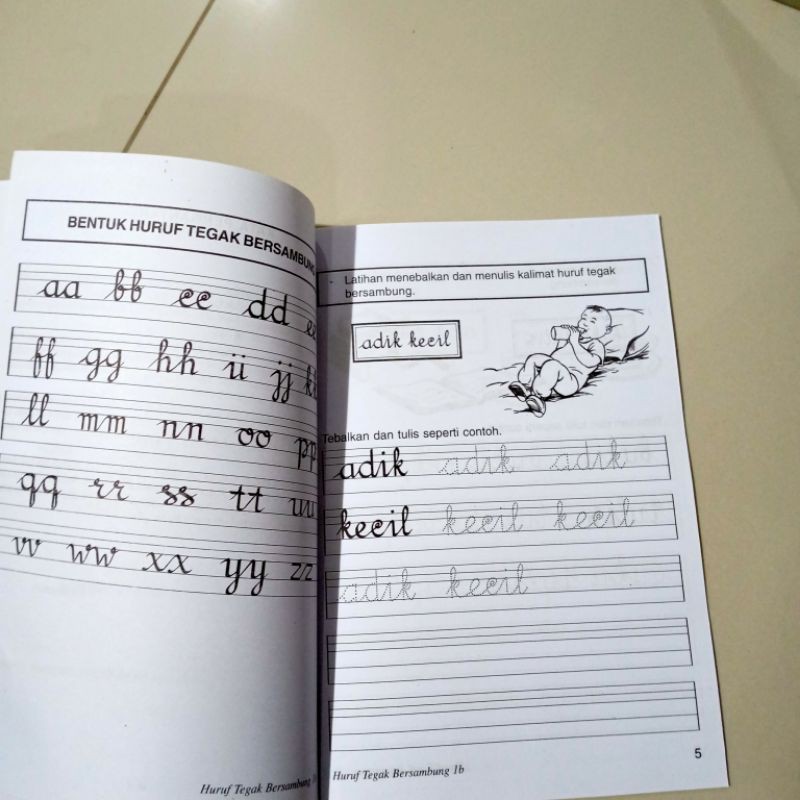 BENTUK HURUF TEGAK BERSAMBUNG
aa bb cc dd ee
ff gg hh ii jj kk
ll mm nn oo pp
qq rr ss tt uu
vv ww xx yy zz
Huruf Tegak Bersambung
Latihan menebalkan dan menulis kalimat huruf tegak
bersambung.
adik kecil
Tebalkan dan tulis seperti contoh.
adik adik adik
kecil kecil kecil
adik kecil
5
Huruf Tegak Bersambung 1b